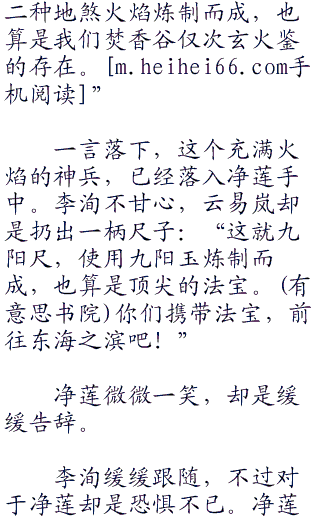 二种地煞火焰炼制而成，也
算是我们焚香谷仅次玄火鉴
的存在。[m.heihei66.com手
机阅读]”
一言落下，这个充满火
焰的神兵，已经落入净莲手
中。李洵不甘心，云易岚却
是扔出一柄尺子：“这就九
阳尺，使用九阳玉炼制而
成，也算是顶尖的法宝。(有
意思书院)你们携带法宝，前
往东海之滨吧！”
净莲微微一笑，却是缓
缓告辞。
李洵缓缓跟随，不过对
于净莲却是恐惧不已。净莲